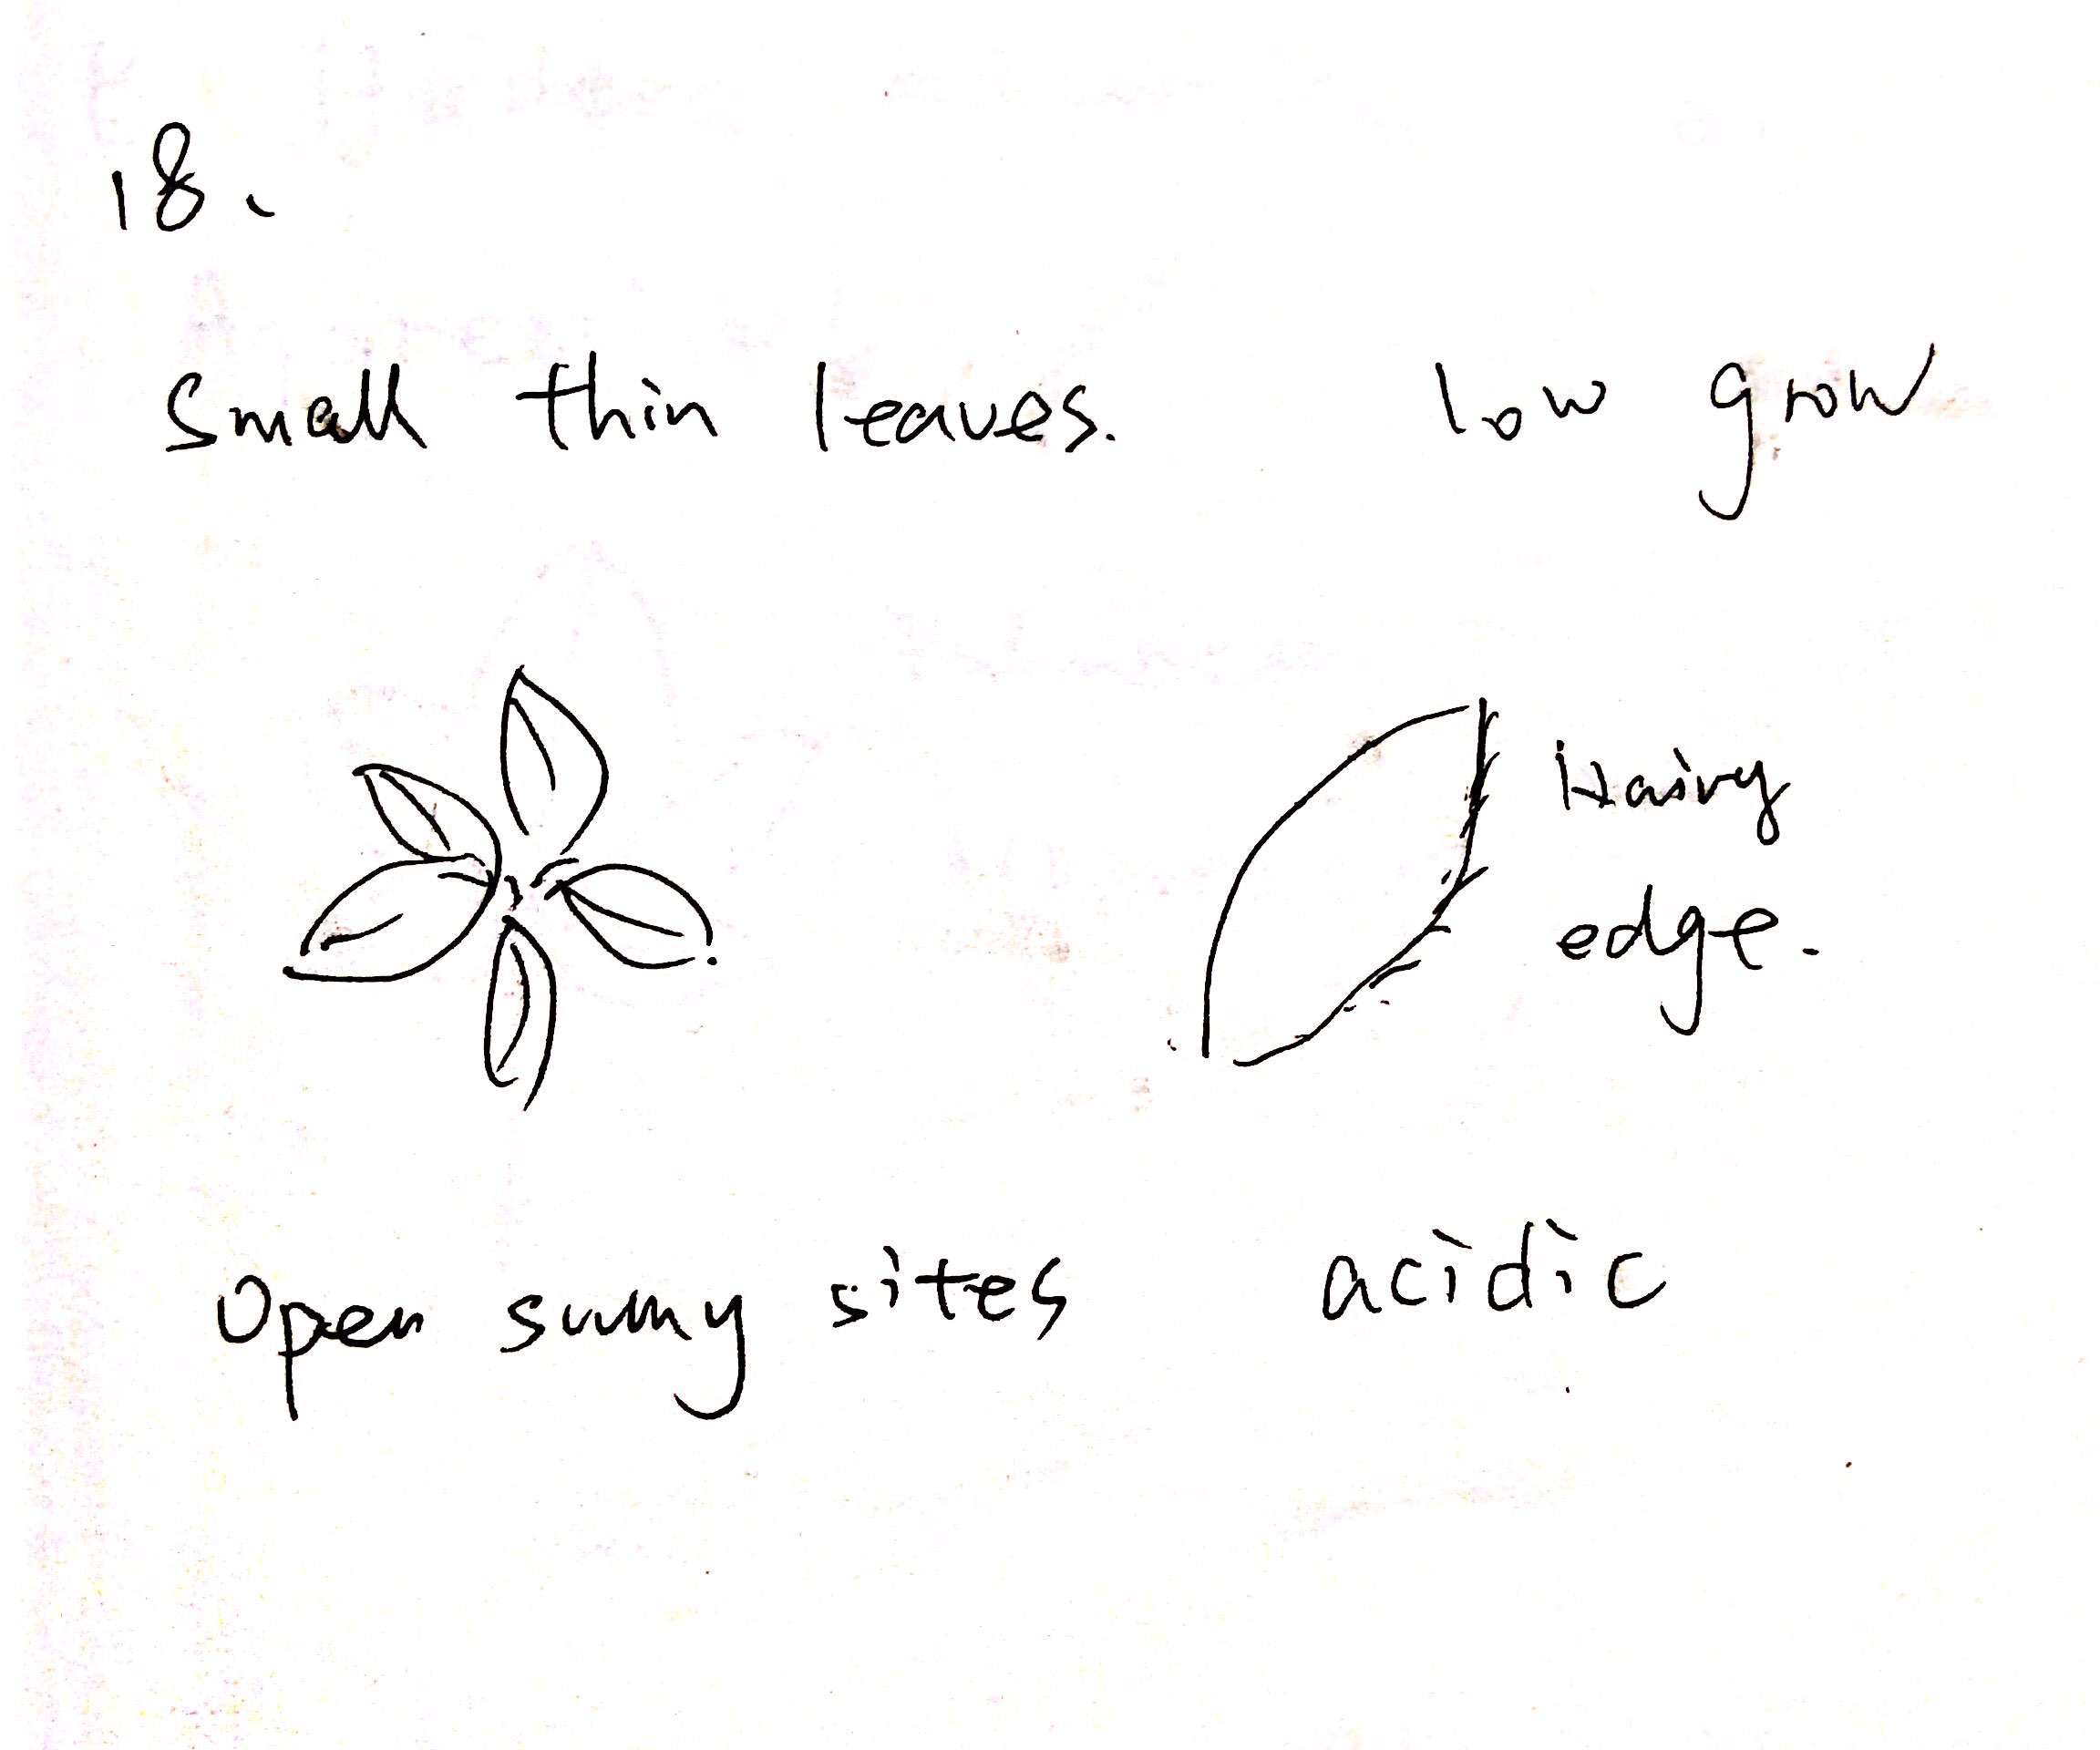 18.
Small thin leaves. low grow
Hairy
edge.
Open sunny sites acidic